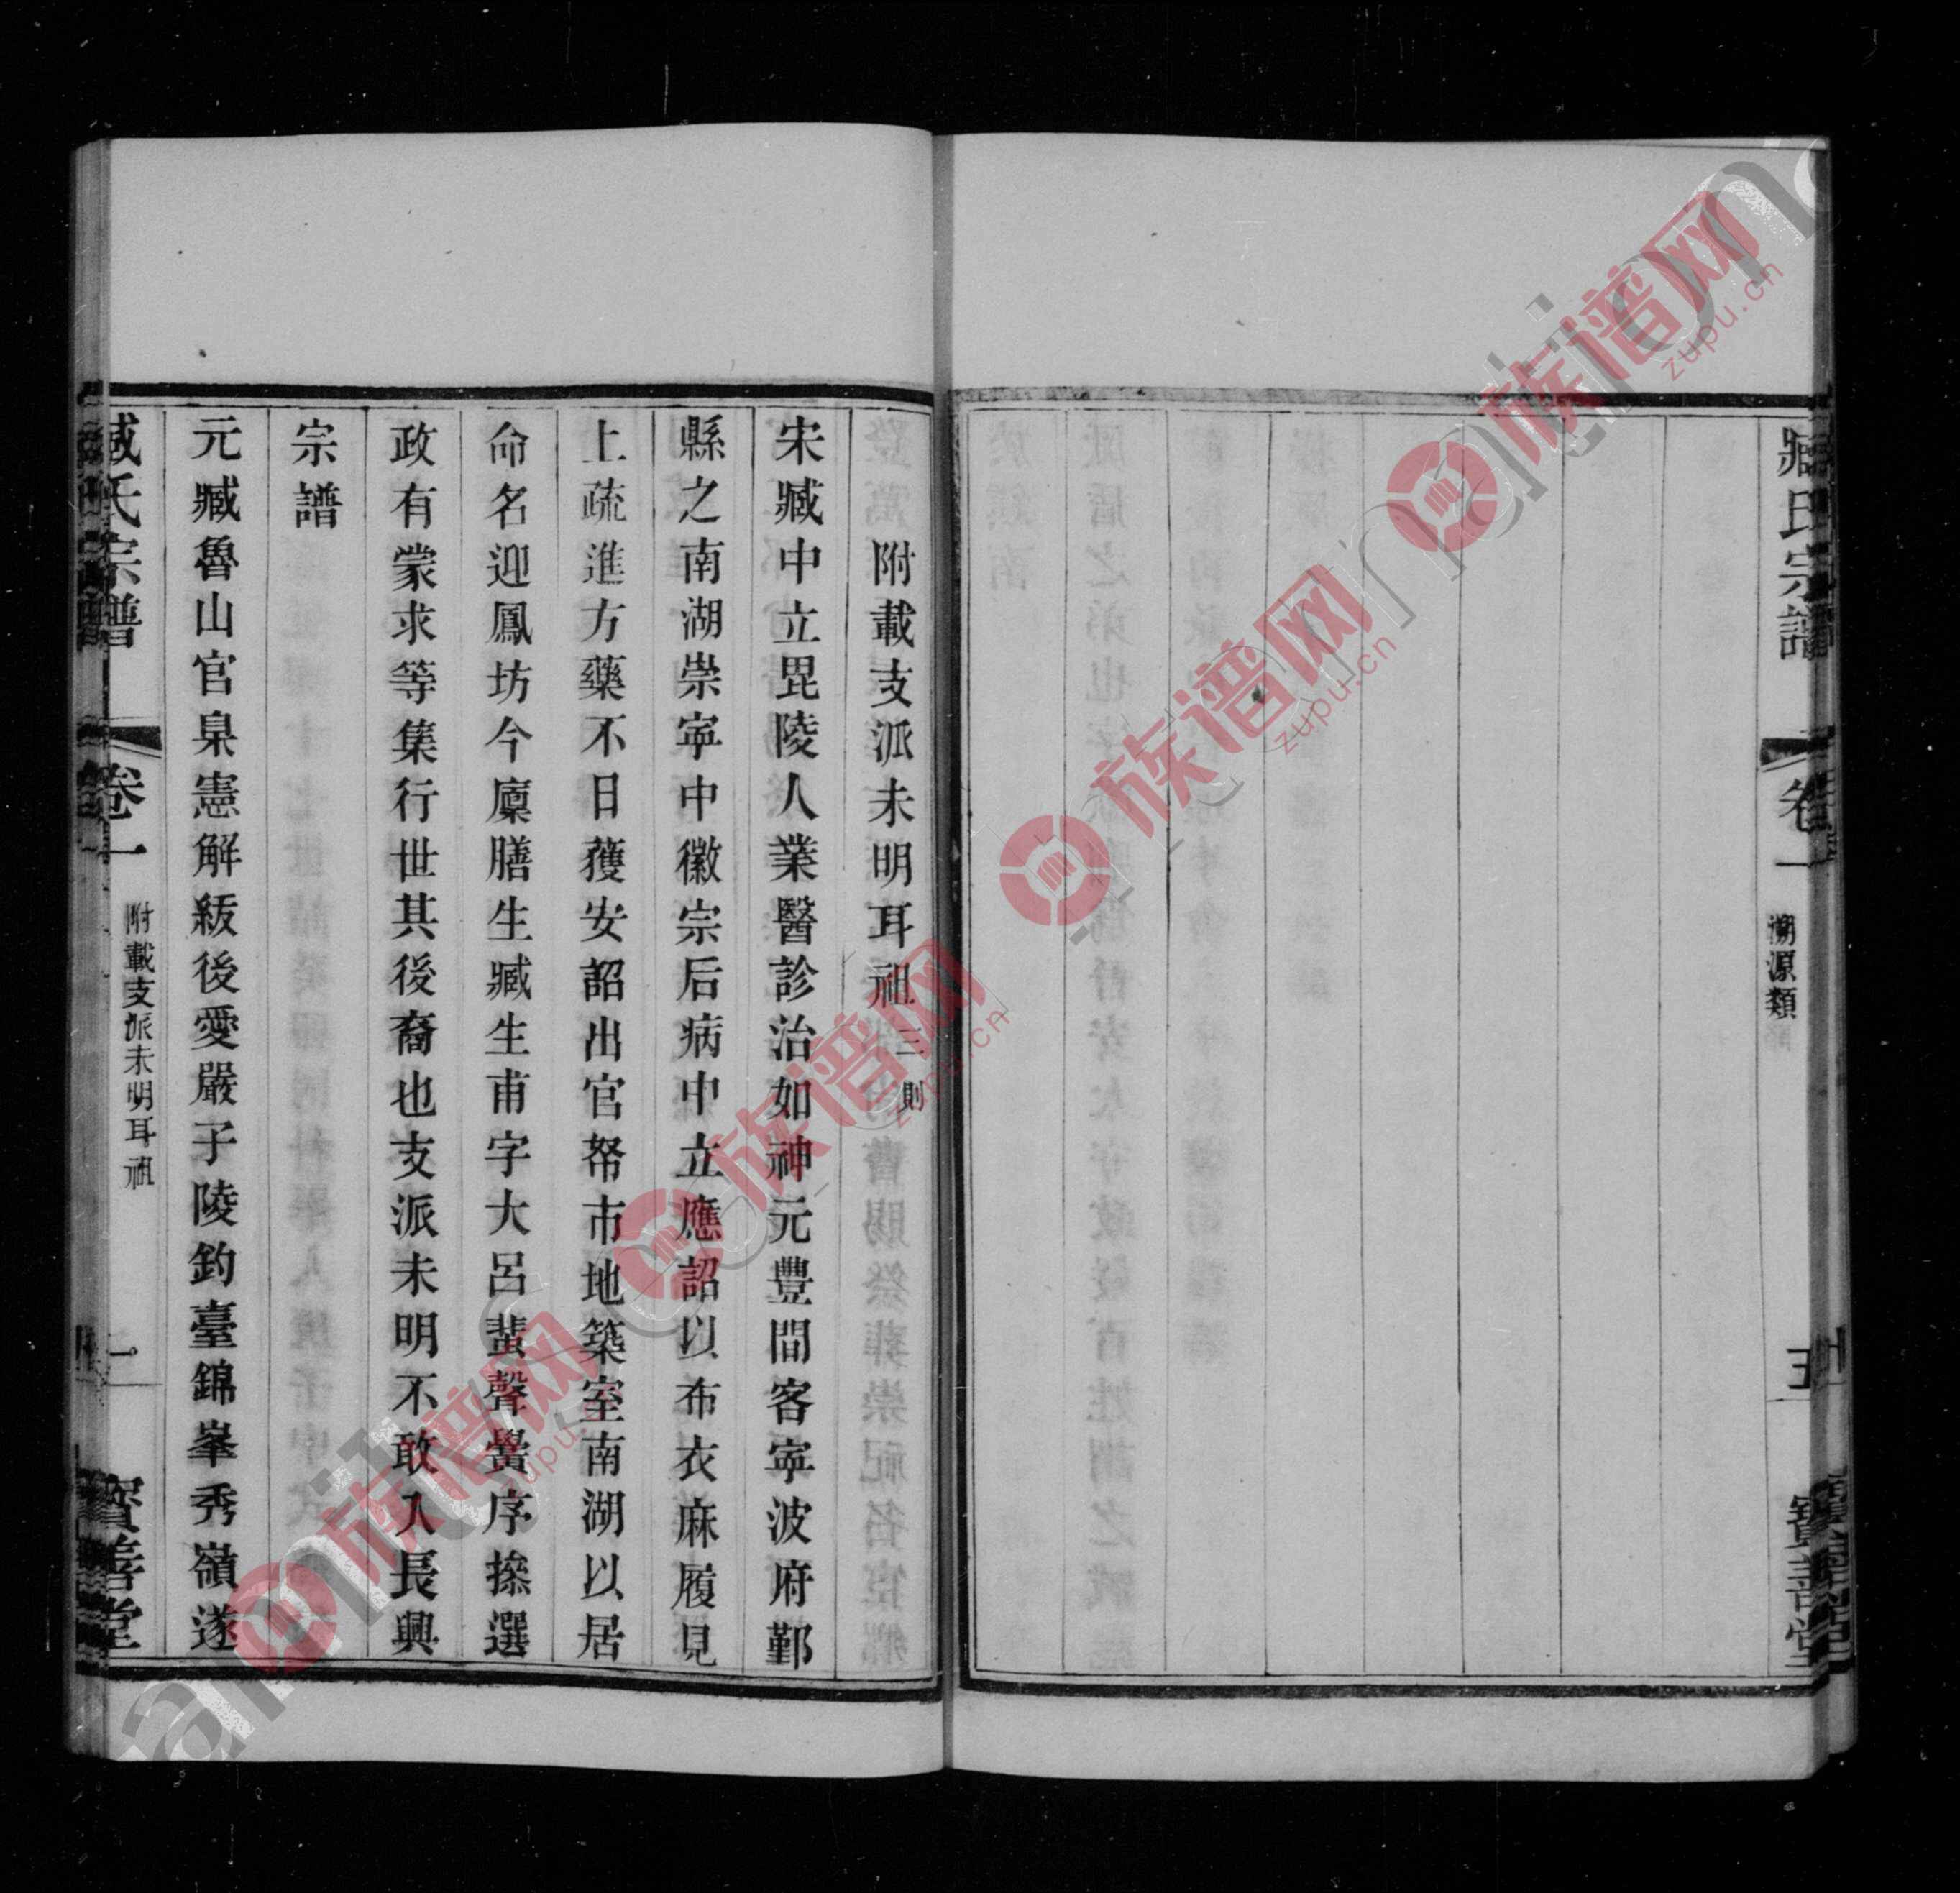 臧氏宗譜 卷一 溯源類 五 寶善堂
附載支派未明耳祖 三則
宋臧中立毘陵人業醫診治如神元豐間客寧波府鄞
縣之南湖崇寧中徽宗后病中立應詔以布衣麻履見
上疏進方藥不日獲安詔出官帑市地築室南湖以居
命名迎鳳坊今廩膳生臧生甫字大呂蜚聲黌序掾選
政有蒙求等集行世其後裔也支派未明不敢入長興
宗譜
元臧魯山官臬憲解紱後愛嚴子陵釣臺錦峯秀嶺遂
臧氏宗譜 卷一 附載支派未明耳祖 一 寶善堂
族谱网
zupu.cn
族谱网
zupu.cn
族谱网
zupu.cn
族谱网
zupu.cn